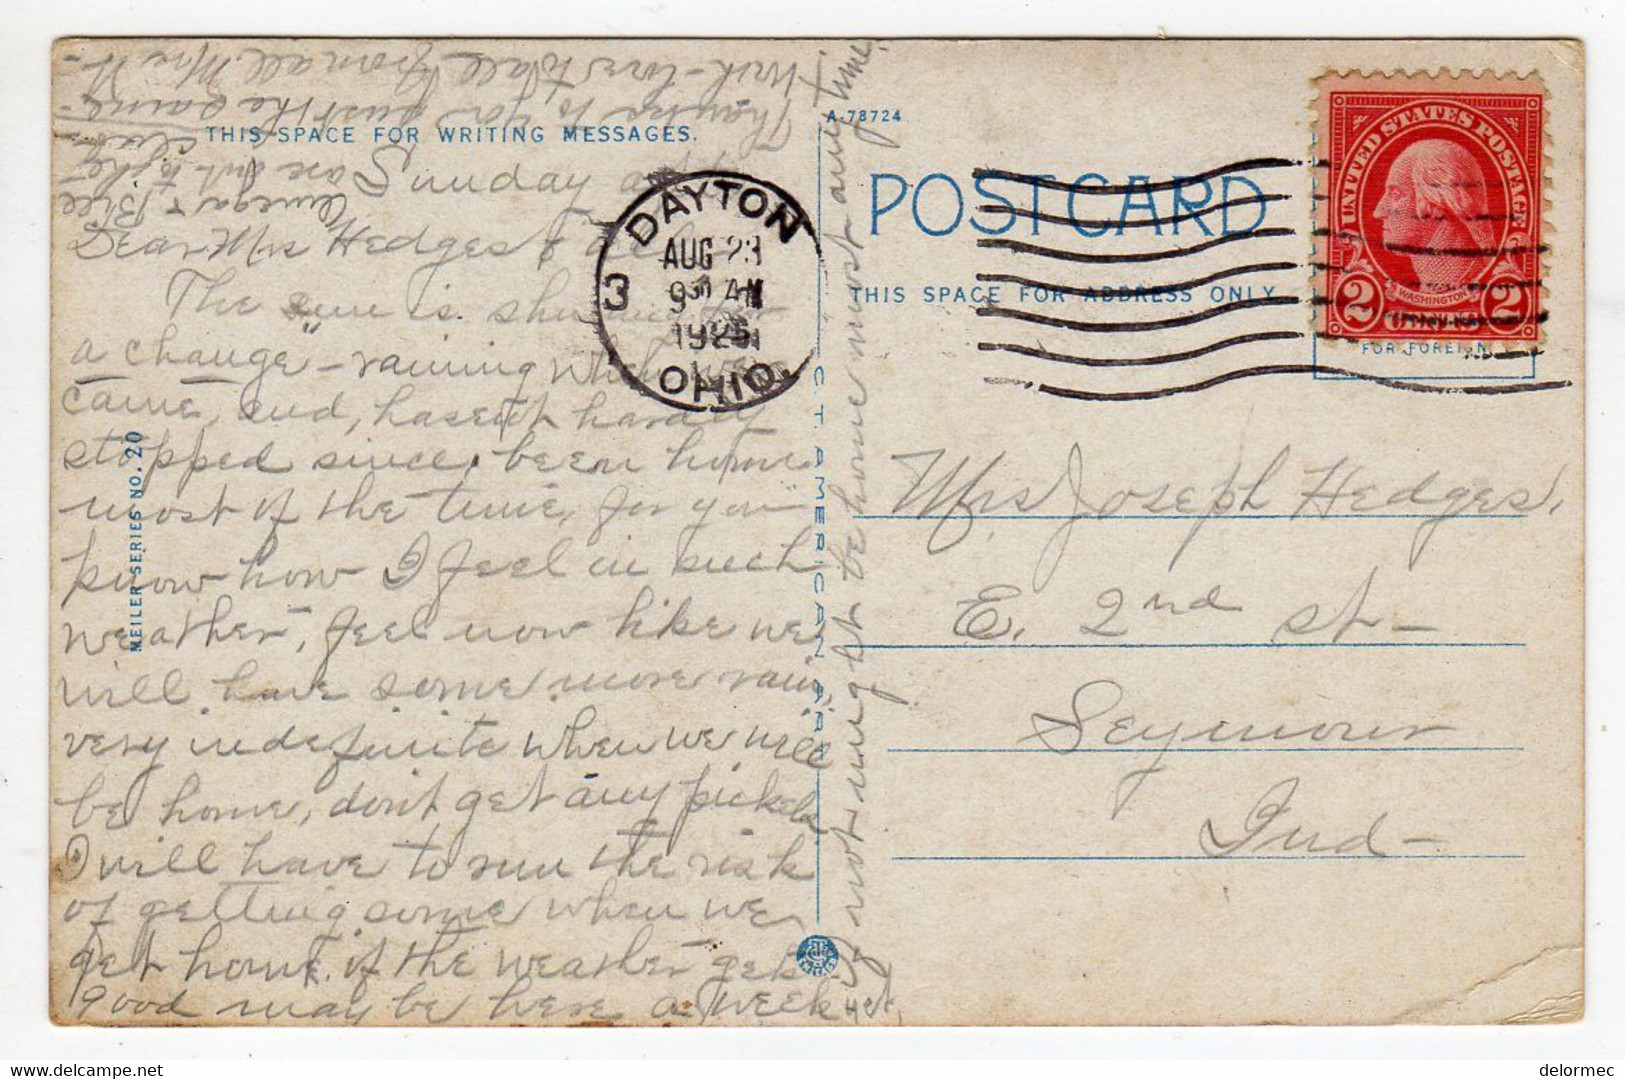 THIS SPACE FOR WRITING MESSAGES.
Sunday
Dear Mrs Hedges &
The sun is
a change - raining when we
came, and, hasen't hardly
stopped since, been home
most of the time, for you
know how I feel in such
weather, feel now like we
will have some more rain,
very indefinite when we will
be home, don't get any pickels
I will have to run the risk
of getting some when we
get home. if the weather gets
good may be here a week
not might be home most any time.
Thanks to you just the same -
love to all from all. Mrs W-
Omega & Bree
are out to the
club
MEILER SERIES NO. 20
C. T. AMERICAN ART
A-78724
POSTCARD
THIS SPACE FOR ADDRESS ONLY
DAYTON
AUG 23
9 30 AM
OHIO
3
UNITED STATES POSTAGE
WASHINGTON
2 CENTS 2
FOR FOREIGN
Mrs Joseph Hedges,
E. 2nd st -
Seymour
Ind -
delormec